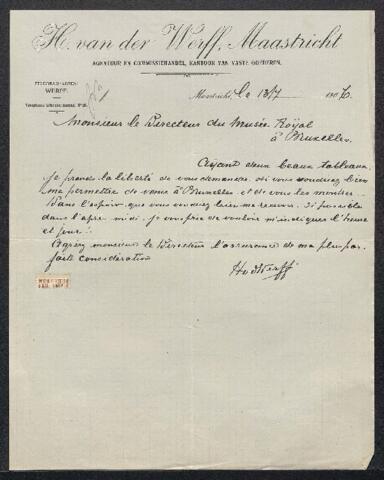 H. van der Werff, Maastricht
AGENTUUR EN COMMISSIEHANDEL, KANTOOR VAN VASTE GOEDEREN.
WERFF.
Maastricht, le 13/7 190
Monsieur le Directeur du Musée Royal
à Bruxelles.
Ayant deux beaux tableaux,
je prends la liberté de vous demander, si vous voudriez bien
me permettre de venir à Bruxelles et de vous les montrer.
Dans l'espoir, que vous voudrez bien me recevoir, si possible
dans l'apre midi, je vous prie de vouloir m'indiquer l'heure
et jour.
Agréez monsieur le Directeur l'assurance de ma plus par-
faite considération
HvdWerff